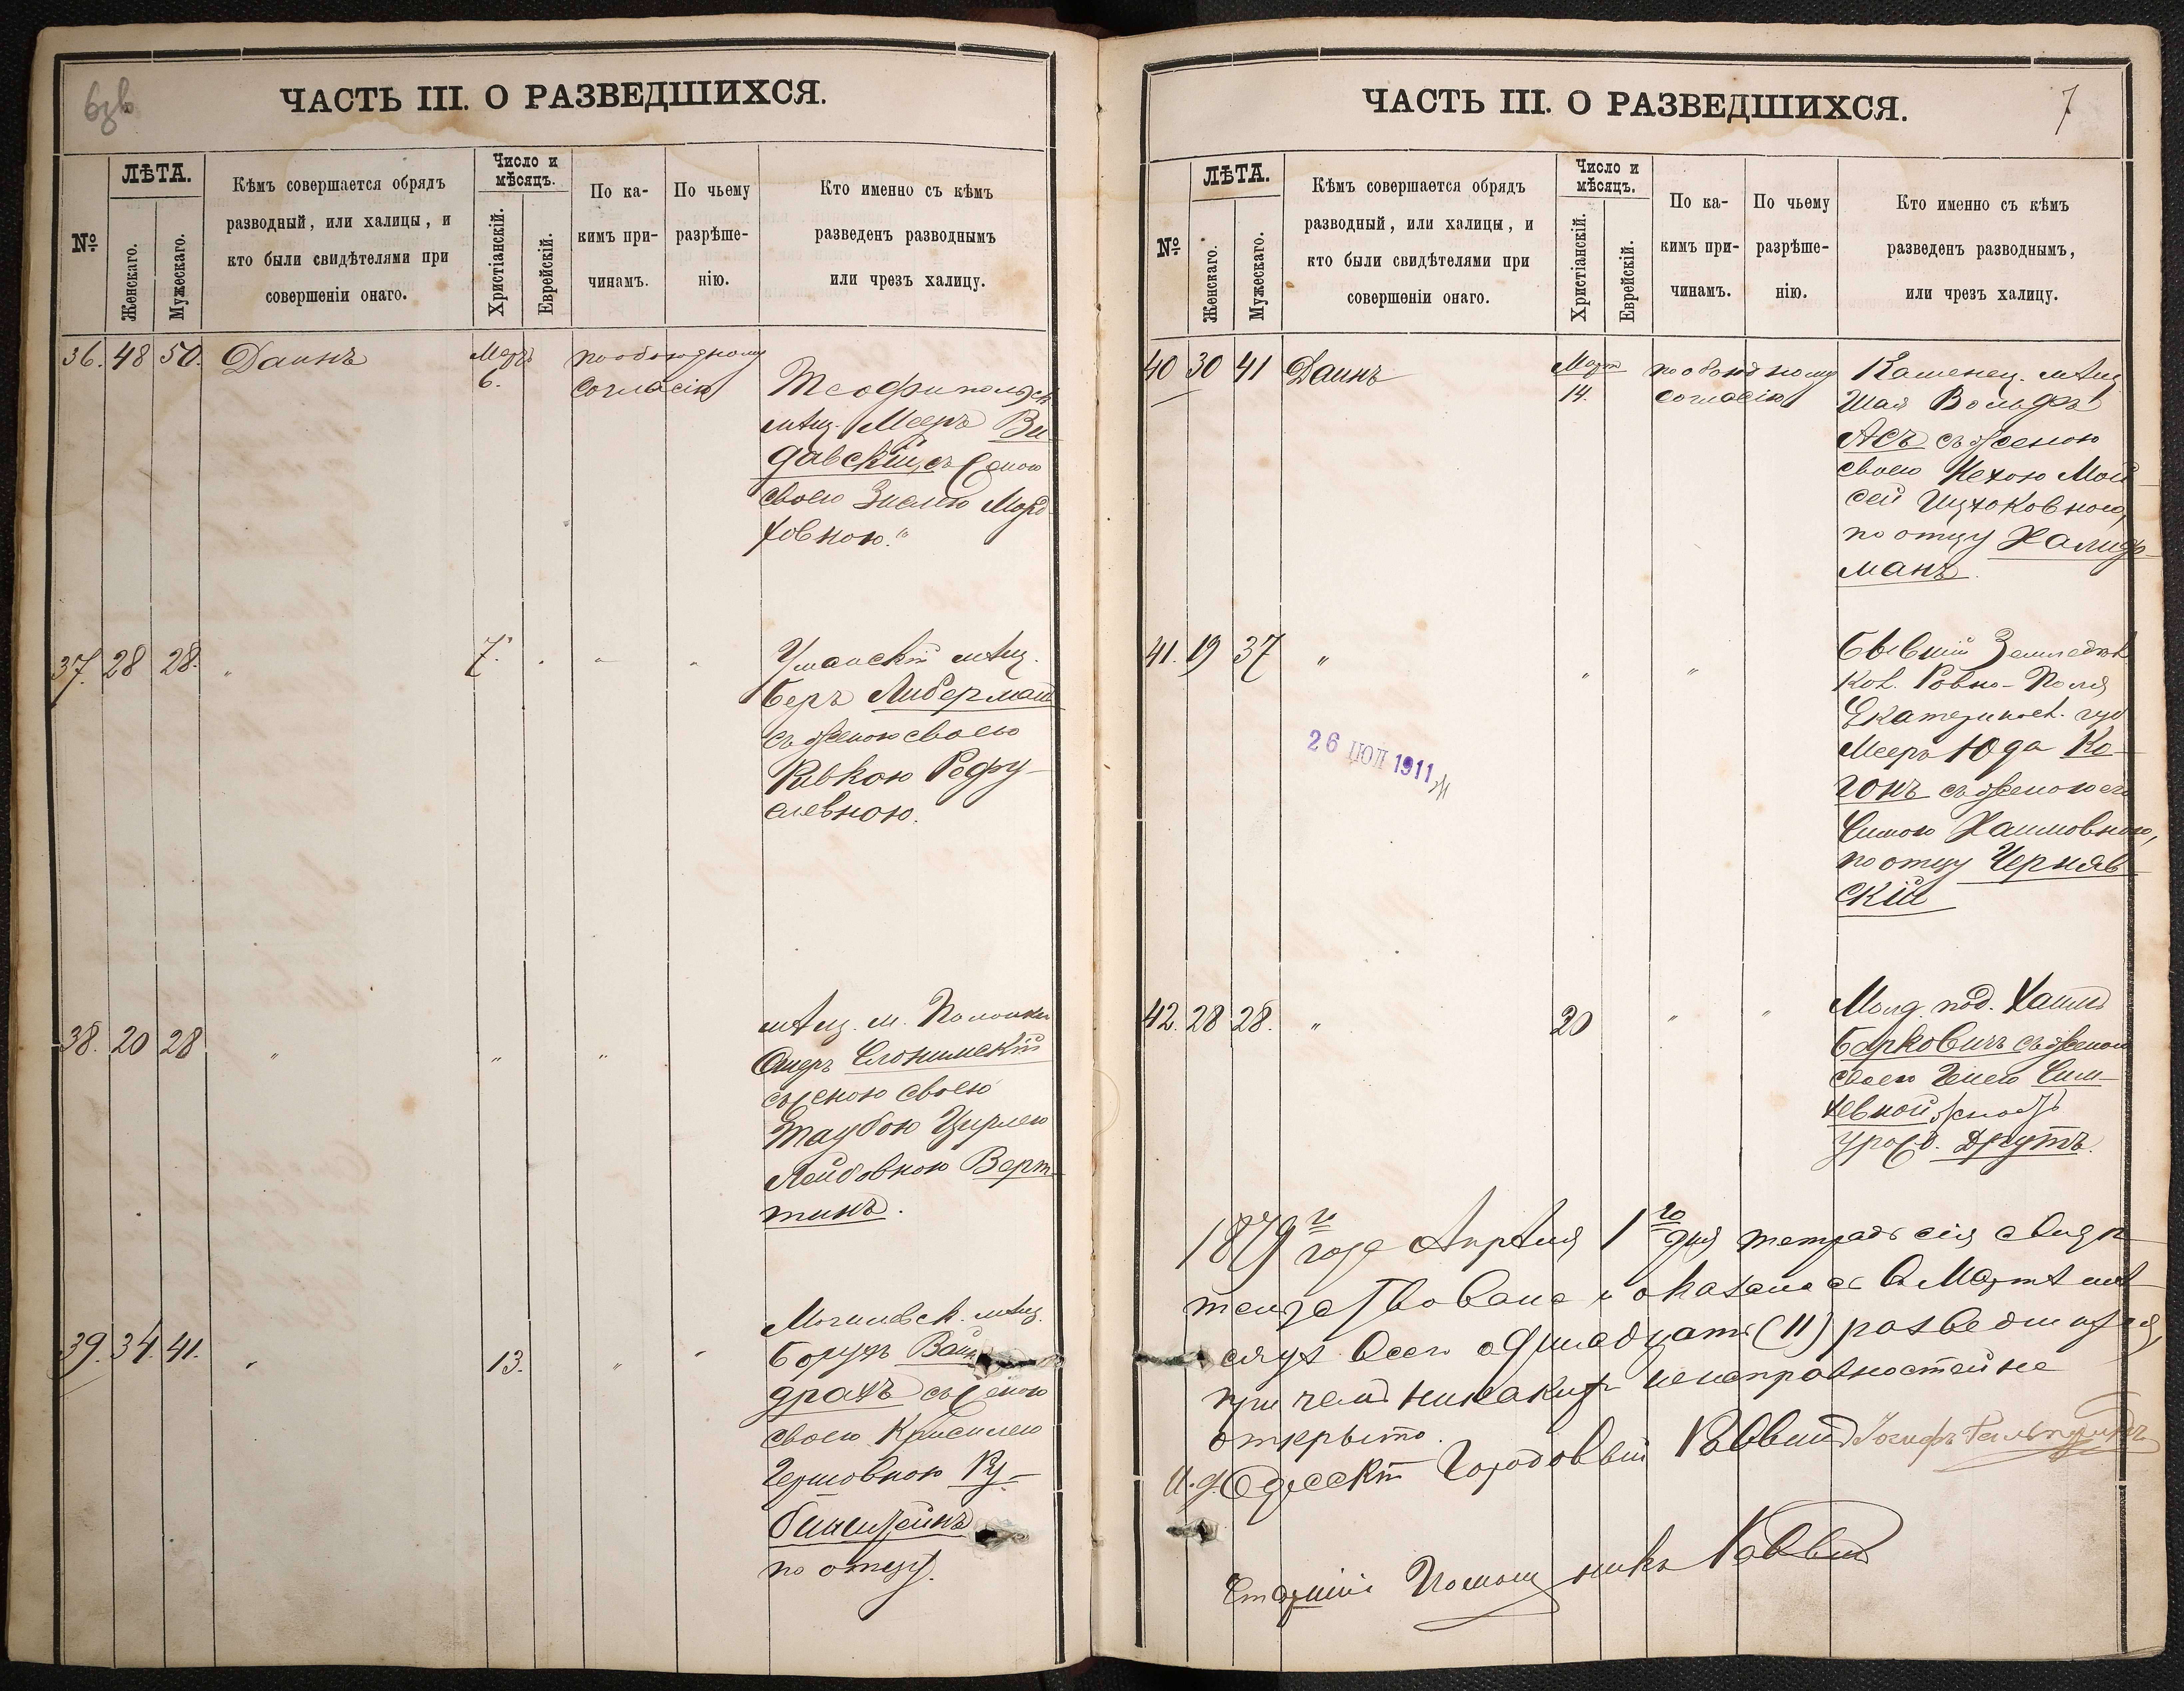 ЧАСТЬ III. О РАЗВЕДШИХСЯ.
№
ЛѢТА.
Женскаго.
Мужескаго.
Кѣмъ совершается обрядъ
разводный, или халицы, и
кто были свидѣтелями при
совершеніи онаго.
Число и
мѣсяцъ.
Христіанскій.
Еврейскій.
По ка-
кимъ при-
чинамъ.
По чьему
разрѣше-
нію.
Кто именно съ кѣмъ
разведенъ разводнымъ
или чрезъ халицу.
36. 48 50. Даинъ
Мартъ
6.
по обоюдному
согласію
Теофипольск
мѣщ. Мееръ Ви-
давскій, съ женою
своею Зислею Морд-
ховною.
37. 28 28. "
7.
Уманскій мѣщ.
Беръ Либерман
съ женою своею
Ривкою Рефу-
левною.
38. 20 28 " " "
мѣщ. м. Полонки
Ошеръ Слонимскій
съ женою своею
Таубою Цирлею
Лейбовною Верт-
тинъ.
39. 34. 41. "
13.
" "
Могилевск. мѣщ.
Борухъ Вайн
драхъ съ женою
своею Крисилею
Гершовною Ру-
бинштейнъ
по отцу.
ЧАСТЬ III. О РАЗВЕДШИХСЯ.
7
№
ЛѢТА.
Женскаго.
Мужескаго.
Кѣмъ совершается обрядъ
разводный, или халицы, и
кто были свидѣтелями при
совершеніи онаго.
Число и
мѣсяцъ.
Христіанскій.
Еврейскій.
По ка-
кимъ при-
чинамъ.
По чьему
разрѣше-
нію.
Кто именно съ кѣмъ
разведенъ разводнымъ,
или чрезъ халицу.
40 30 41 Даинъ
Март
14.
по обоюдному
согласію
Каменец. мѣщ
Шая Вольфъ
Асъ съ женою
своею Нехою Мой-
сей Ицхоковною,
по отцу Халиф-
манъ.
41. 19 37 " " "
бывшій Земледѣл
Кол. Ровно-Поля
Екатеринос. губ
Мееръ Юда Ко-
гонъ съ женою его
Симою Хаимовною,
по отцу Черняв-
скій
26 ІЮЛ 1911
42. 28 28. "
20
" "
Молд. под. Хаимъ
Берковичъ съ женою
своею Генею Сим-
хевной
урожд. Друтъ.
1879 го года Апрѣля 1 го дня тетрадь сія свидѣ-
тельствована и оказалось въ Мартѣ мѣ-
сяцѣ всего одинадцать (11) разведшихся,
при чемъ никакихъ неисправностей не
открыто.
И. д. Одесскій Городовый Раввинъ
Старшій Помощникъ Раввина